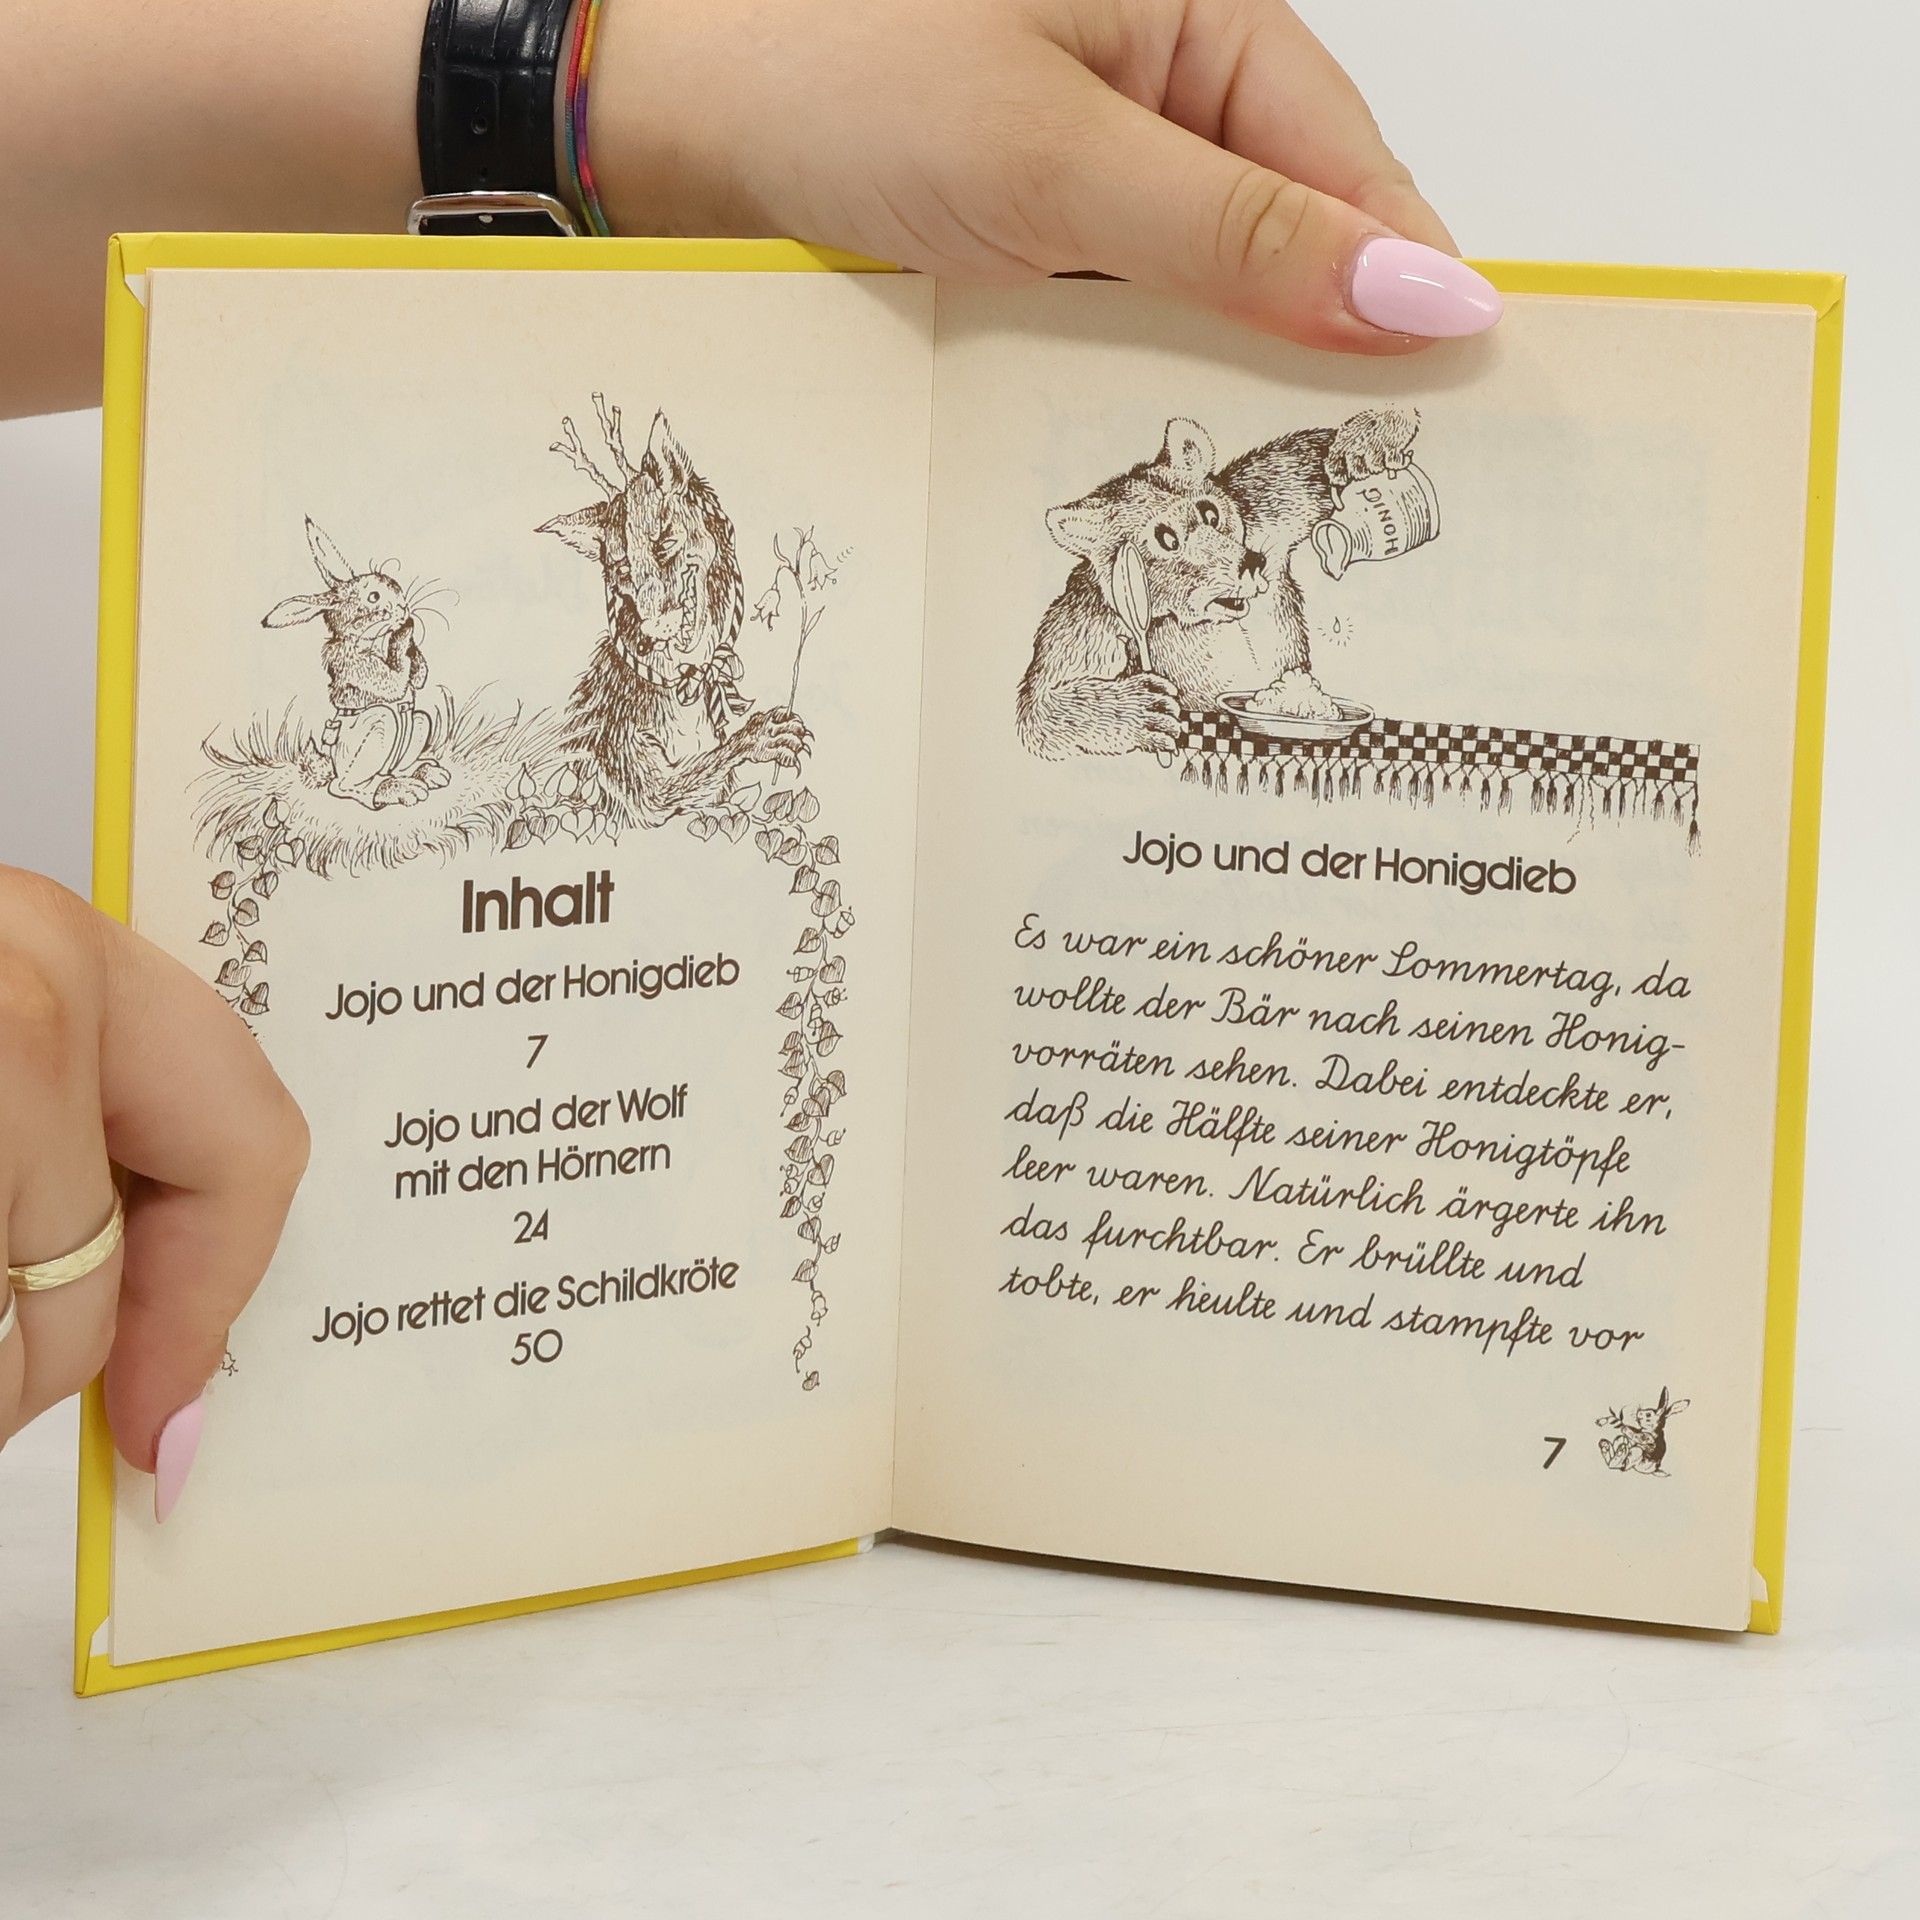 Inhalt
Jojo und der Honigdieb
7
Jojo und der Wolf
mit den Hörnern
24
Jojo rettet die Schildkröte
50
HONIG
Jojo und der Honigdieb
Es war ein schöner Sommertag, da
wollte der Bär nach seinen Honig-
vorräten sehen. Dabei entdeckte er,
daß die Hälfte seiner Honigtöpfe
leer waren. Natürlich ärgerte ihn
das furchtbar. Er brüllte und
tobte, er heulte und stampfte vor
7